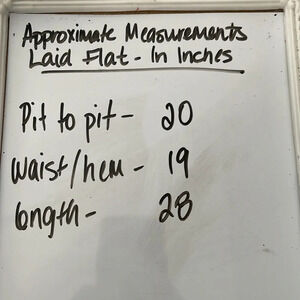 Approximate Measurements
Laid Flat - In Inches
Pit to pit - 20
Waist/hem - 19
length - 28